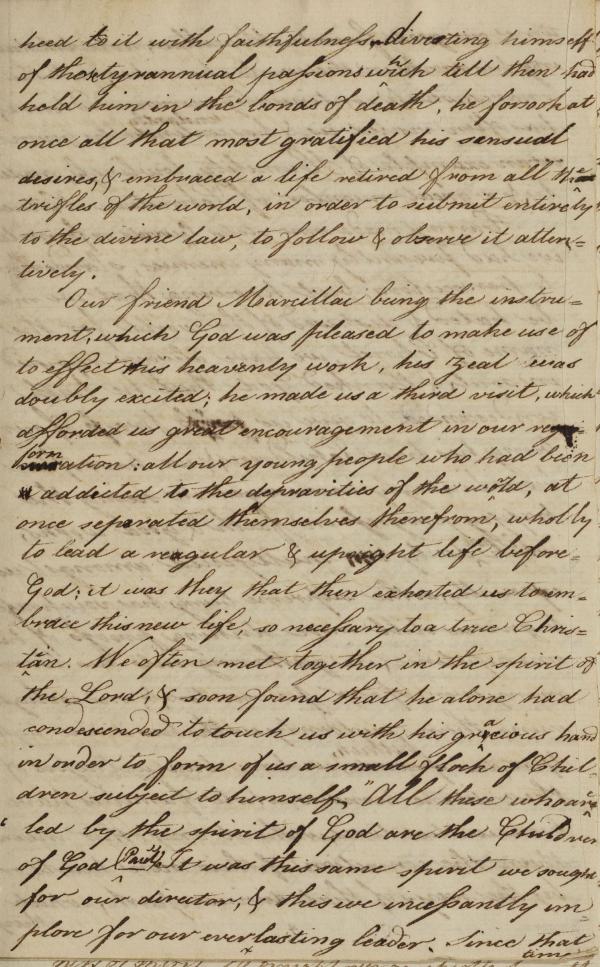 heed to it with faithfulness, diverting himself
of the tyrannical passions wch till then had
held him in the bonds of death, he forsook at
once all that most gratified his sensual
desires, & embraced a life retired from all the
trifles of the world, in order to submit entirely
to the divine law, to follow & observe it atten=
tively.
Our friend Marcillac being the instru=
ment, which God was pleased to make use of
to effect this heavenly work, his zeal was
doubly excited; he made us a third visit, which
afforded us great encouragement in our
formation: all our young people who had been
addicted to the depravities of the world, at
once separated themselves therefrom, wholly
to lead a reagular & upright life before
God; it was they that then exhorted us to em=
brace this new life, so necessary to a true Chris=
tian. We often met together in the spirit of
the Lord, & soon found that he alone had
condescended to touch us with his gracious hand
in order to form of us a small flock of Chil=
dren subject to himself, "All these who are
led by the spirit of God are the Children
of God (Paul). It was this same spirit we sought
for our director, & this we incessantly im
plore for our everlasting leader. Since that